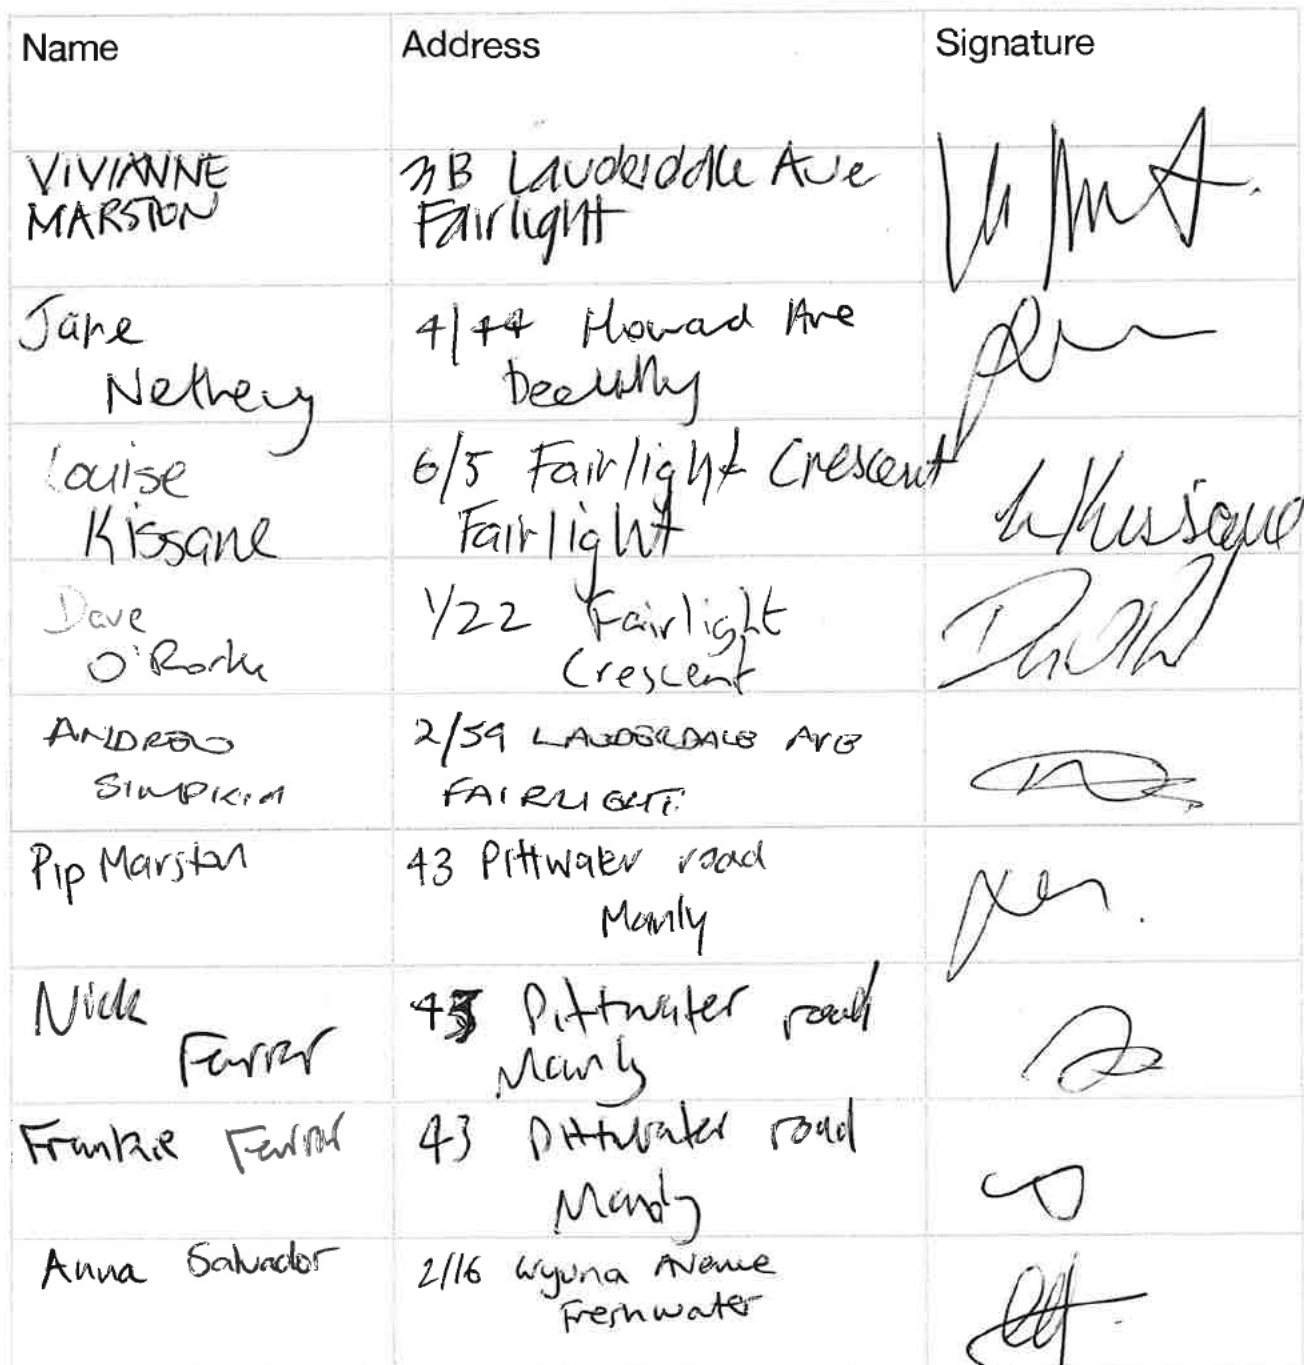 Name Address Signature
VIVIANNE
MARSTON
Lauderdale Ave
Fairlight
Jane
Nethery
4/44 Howard Ave
Dee Why
Louise
Kissane
6/5 Fairlight Crescent
Fairlight
L Kissane
Dave
O'Rorke
1/22 Fairlight
Crescent
ANDREW
SIMPKIN
2/59 LAUDERDALE AVE
FAIRLIGHT
Pip Marston
43 Pittwater road
Manly
Nick
Farrar
43 Pittwater road
Manly
Frankie Farrar
43 Pittwater road
Manly
Anna Salvador
2/16 Wyuna Avenue
Freshwater